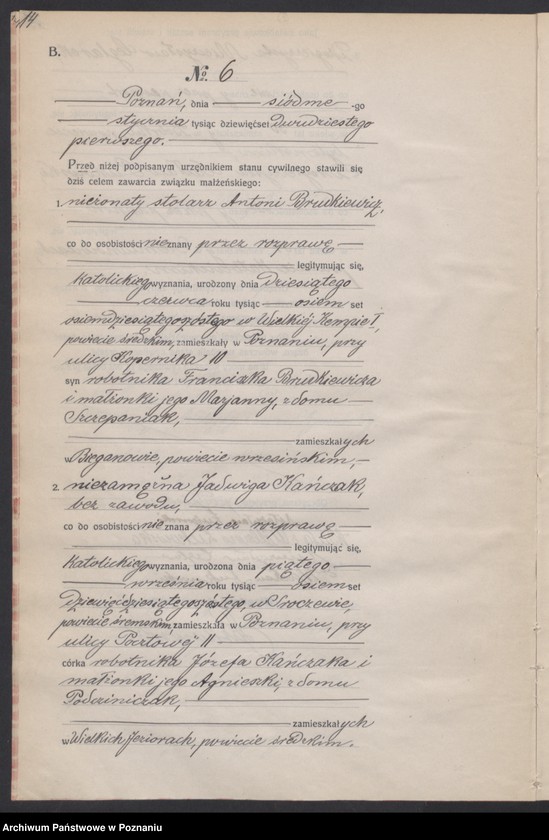 14
B.
No. 6
Poznań, dnia siódme-go
stycznia tysiąc dziewięćset dwudziestego
pierwszego.
Przed niżej podpisanym urzędnikiem stanu cywilnego stawili się
dziś celem zawarcia związku małżeńskiego:
1. nieżonaty stolarz Antoni Brudkiewicz,
co do osobistości nieznany przez rozprawę
legitymując się,
katolickiego wyznania, urodzony dnia dziesiątego
czerwca roku tysiąc osiemset
osiemdziesiątego szóstego w Wielkiej Kempie I,
powiecie średzkim, zamieszkały w Poznaniu, przy
ulicy Kopernika 10
syn robotnika Franciszka Brudkiewicza
i małżonki jego Marjanny, z domu
Szczepaniak,
zamieszkałych
w Bieganowie, powiecie wrzesińskim,
2. niezamężna Jadwiga Kańczak,
bez zawodu,
co do osobistości nieznana przez rozprawę
legitymując się,
katolickiego wyznania, urodzona dnia piątego
września roku tysiąc osiemset
dziewięćdziesiątego szóstego, w Sroczewie,
powiecie śremskim zamieszkała w Poznaniu, przy
ulicy Pocztowej 11
córka robotnika Józefa Kańczaka i
małżonki jego Agnieszki, z domu
zamieszkałych
w Wielkich Jeziorach, powiecie średzkim.
Archiwum Państwowe w Poznaniu